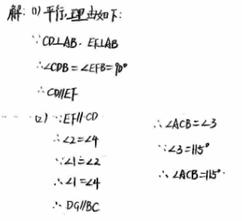 解:(1)平行,理由如下:
∵CD⊥AB,EF⊥AB
∴∠CDB=∠EFB=90°
∴CD∥EF
(2)∵EF∥CD
∴∠2=∠4
∵∠1=∠2
∴∠1=∠4
∴DG∥BC
∴∠ACB=∠3
∵∠3=115°
∴∠ACB=115°